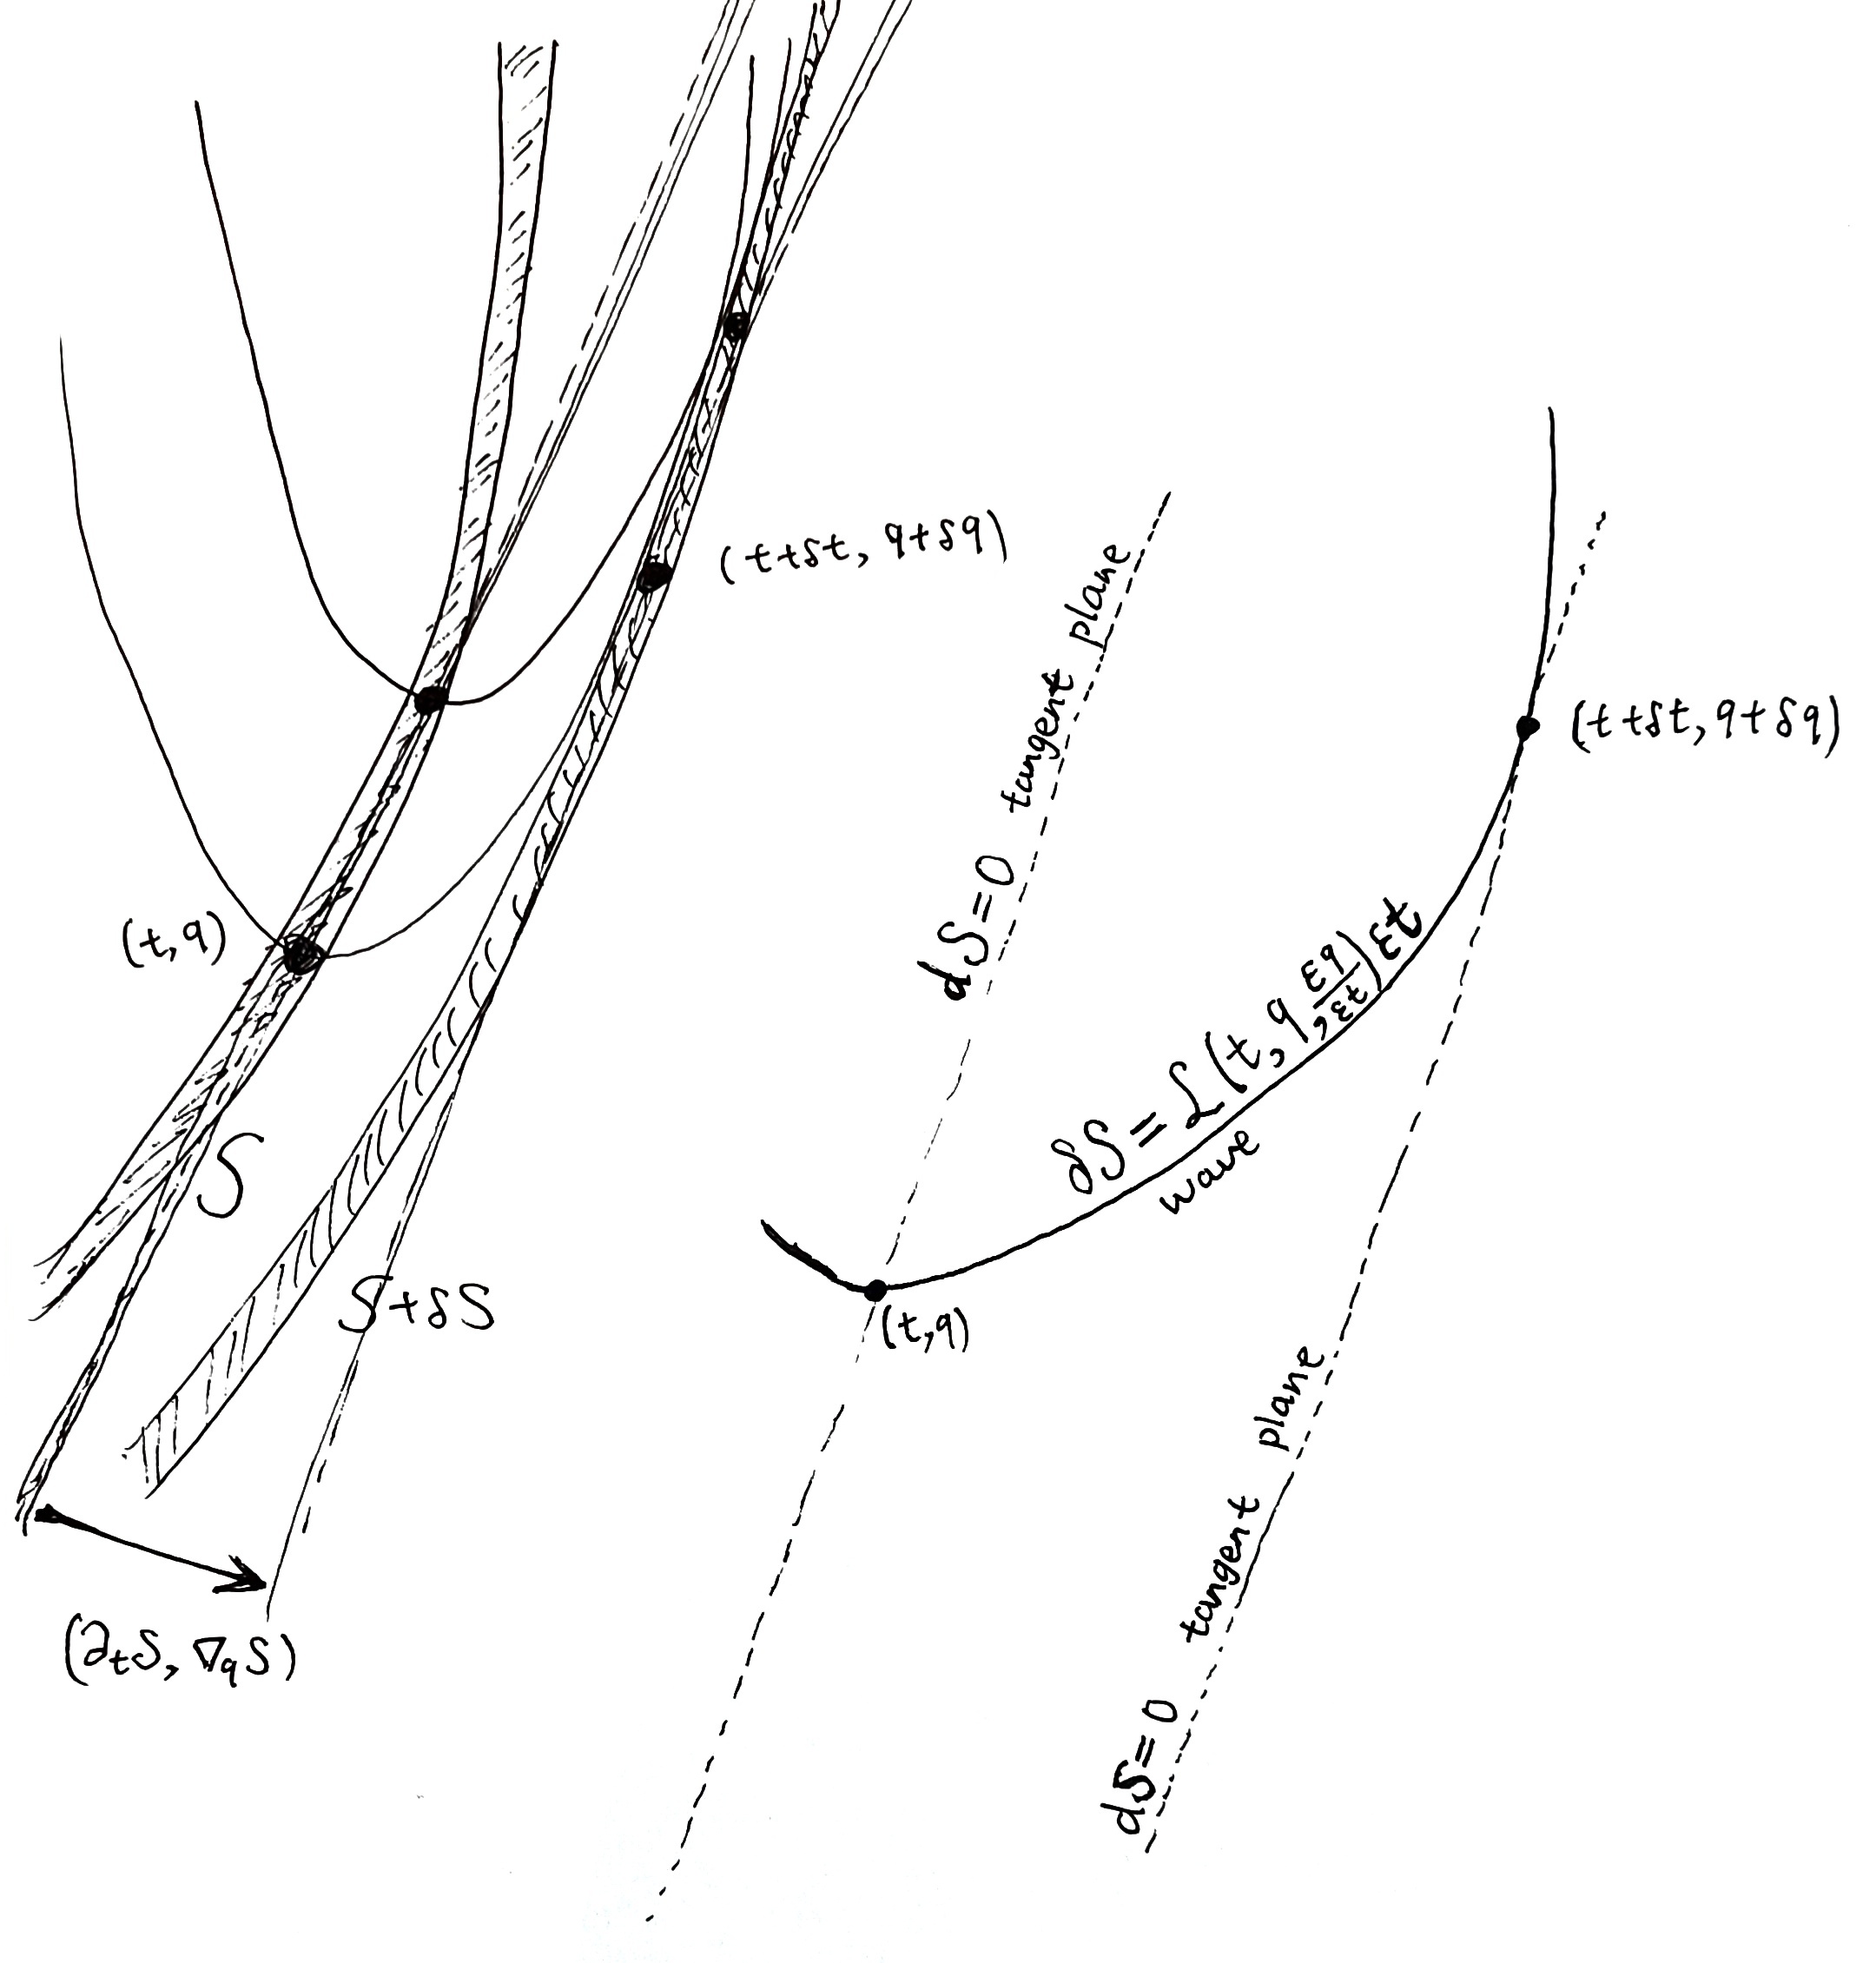 (t+δt, q+δq)
(t,q)
S
S+δS
(∂tS, ∇qS)
dS=0 tangent plane
(t+δt, q+δq)
δS=L(t,q,δq/δt)δt
wave
(t,q)
dS=0 tangent plane